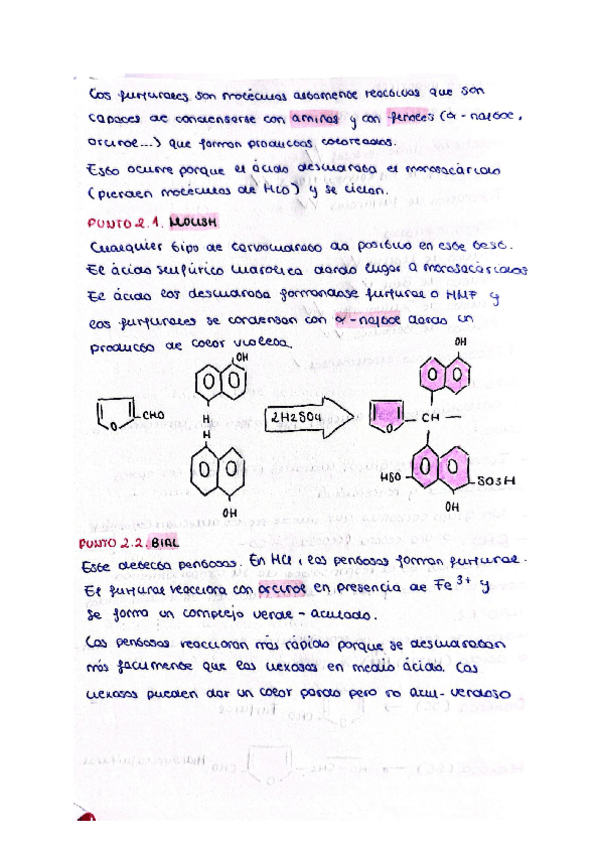 Los furfurales son moléculas altamente reactivas que son
capaces de condensarse con aminas y con fenoles (α-naftol,
orcinol...) que forman productos coloreados.
Esto ocurre porque el ácido deshidrata el monosacárido
(pierden moléculas de H2O) y se ciclan.
PUNTO 2.1. MOLISH
Cualquier tipo de carbohidrato da positivo en este test.
El ácido sulfúrico hidroliza dando lugar a monosacáridos
El ácido los deshidrata formandose furfural o HMF y
los furfurales se condensan con α-naftol dando un
producto de color violeta.
OH
OH
O
CHO
H
H
2H2SO4
O
CH
HSO
SO3H
OH
OH
PUNTO 2.2. BIAL
Este detecta pentosas. En HCl, las pentosas forman furfural.
El furfural reacciona con orcinol en presencia de Fe3+ y
se forma un complejo verde-azulado.
Las pentosas reaccionan más rápido porque se deshidratan
más facilmente que las hexosas en medio ácido. Las
hexosas pueden dar un color pardo pero no azul-verdoso